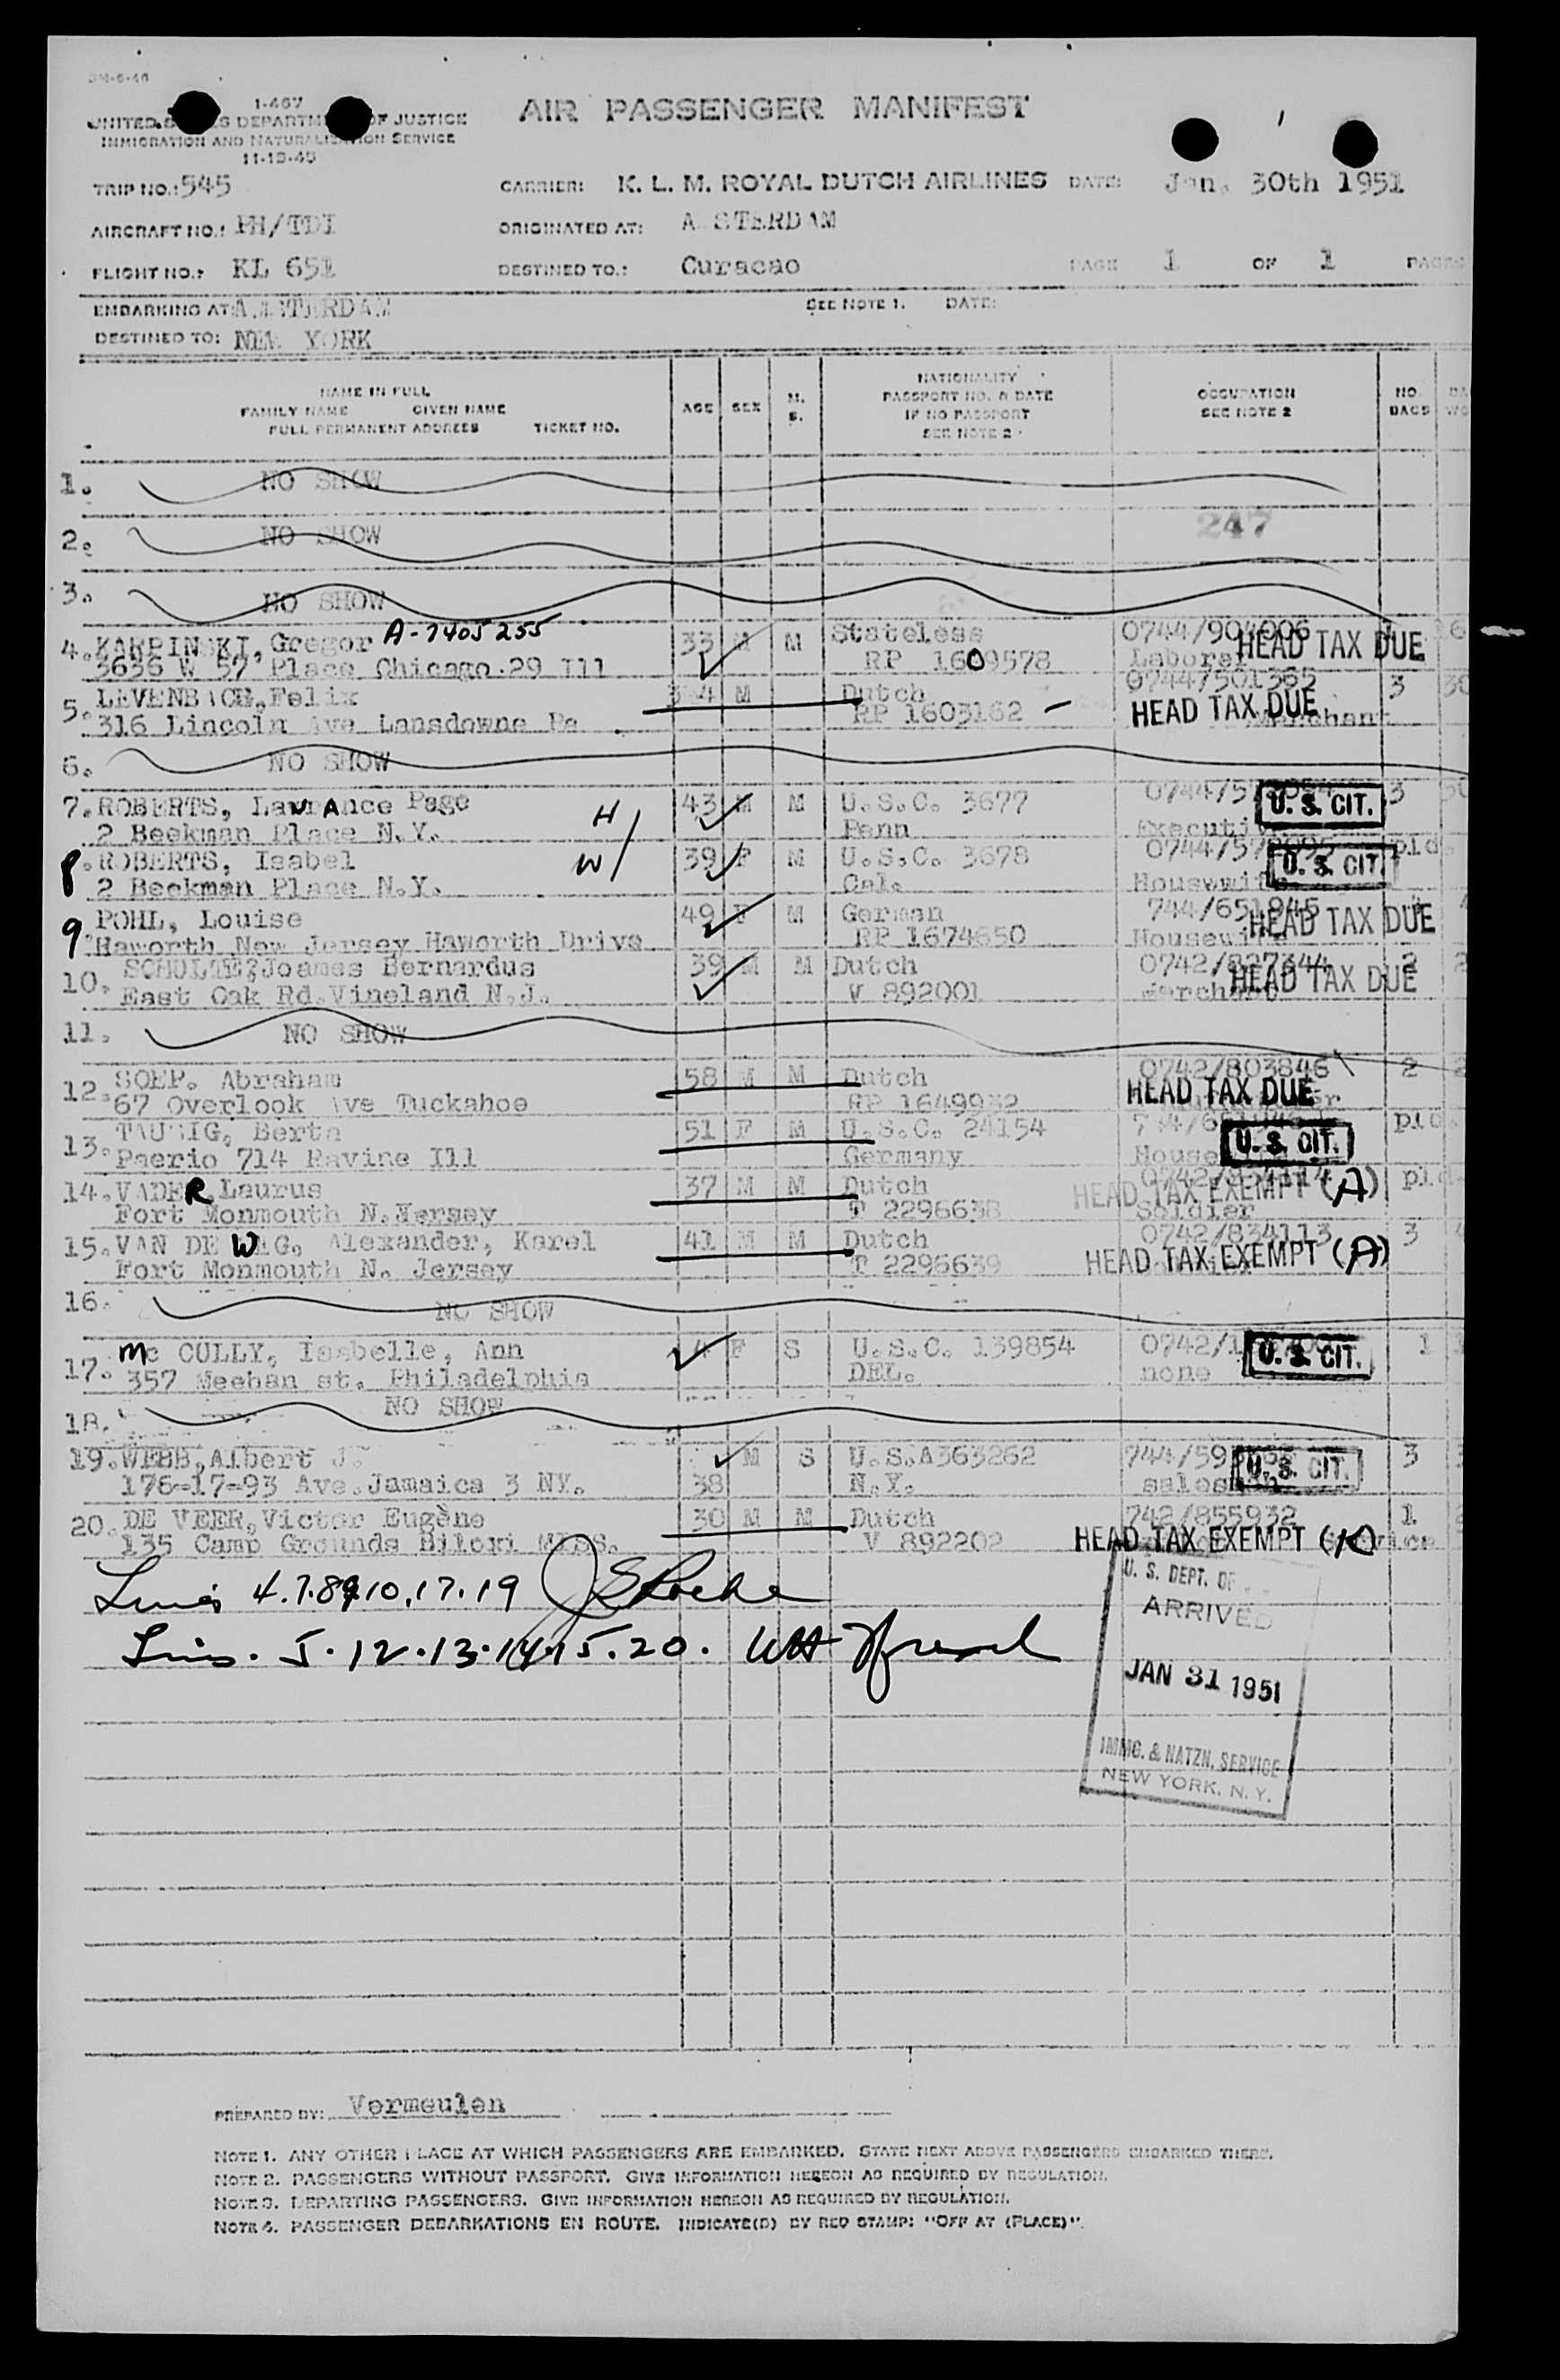 1-467
UNITED STATES DEPARTMENT OF JUSTICE
IMMIGRATION AND NATURALIZATION SERVICE
11-13-45
AIR PASSENGER MANIFEST
TRIP NO.: 545
CARRIER: K. L. M. ROYAL DUTCH AIRLINES DATE: Jan. 30th 1951
AIRCRAFT NO.: PH/TDI
ORIGINATED AT: A STERDAM
FLIGHT NO.: KL 651
DESTINED TO.: Curacao
PAGE 1 OF 1 PAGES
EMBARKING AT: AMSTERDAM
SEE NOTE 1. DATE:
DESTINED TO: NEW YORK
NAME IN FULL
FAMILY NAME GIVEN NAME
FULL PERMANENT ADDRESS TICKET NO.
AGE SEX M. S.
NATIONALITY
PASSPORT NO. & DATE
IF NO PASSPORT
SEE NOTE 2
OCCUPATION
SEE NOTE 2
NO. BAGS
1. NO SHOW
2. NO SHOW 247
3. NO SHOW
4. KARPINSKI, Gregor A-7405255 33 M M Stateless 0744/904006
3636 W 57 Place Chicago.29 Ill RP 1609578 Laborer HEAD TAX DUE
5. LEVENBACH, Felix 34 M Dutch 0744/501365 3
316 Lincoln Ave Lansdowne Pa RP 1603162 HEAD TAX DUE Merchant
6. NO SHOW
7. ROBERTS, Lawrance Page H 43 M M U.S.C. 3677 U. S. CIT. 3
2 Beekman Place N.Y. Penn Executive
8. ROBERTS, Isabel W 39 F M U.S.C. 3678 U. S. CIT.
2 Beekman Place N.Y. Cal. Housewife
9 POHL, Louise 49 F M German 744/651945
Haworth New Jersey Haworth Drive RP 1674650 Housewife HEAD TAX DUE
10. Joannes Bernardus 39 M M Dutch 0742/827344 2
East Oak Rd. Vineland N.J. V 892001 Merchant HEAD TAX DUE
11. NO SHOW
12. SOEP. Abraham 58 M M Dutch 0742/803846 2
67 Overlook Ave Tuckahoe RP 1649932 HEAD TAX DUE
13. TAUSSIG, Berta 51 F M U.S.C. 24154 U. S. CIT.
Paerio 714 Ravine Ill Germany
14. VADER, Laurus 37 M M Dutch HEAD TAX EXEMPT (A)
Fort Monmouth N.Jersey T 2296638 Soldier
15. VAN DE WEG, Alexander, Karel 41 M M Dutch 0742/834113 3
Fort Monmouth N. Jersey T 2296639 HEAD TAX EXEMPT (A)
16. NO SHOW
17. Mc CULLY, Isabelle, Ann 4 F S U.S.C. 139854 U. S. CIT. 1
357 Meehan st. Philadelphia DEL. none
18. NO SHOW
19. WEBB, Albert J. M S U.S.A363262 U. S. CIT. 3
176-17-93 Ave. Jamaica 3 NY. 38 N.Y. salesman
20. DE VEER, Victor Eugène 30 M M Dutch 742/855932 1
135 Camp Grounds Biloxi MISS. V 892202 HEAD TAX EXEMPT
Lines 4.7.8.9.10.17.19
Lines. 5.12.13.14.15.20.
U. S. DEPT. OF
ARRIVED
JAN 31 1951
IMMG. & NATZN. SERVICE
NEW YORK, N. Y.
PREPARED BY: Vermeulen
NOTE 1. ANY OTHER PLACE AT WHICH PASSENGERS ARE EMBARKED. STATE NEXT ABOVE PASSENGERS EMBARKED THERE.
NOTE 2. PASSENGERS WITHOUT PASSPORT. GIVE INFORMATION HEREON AS REQUIRED BY REGULATION.
NOTE 3. DEPARTING PASSENGERS. GIVE INFORMATION HEREON AS REQUIRED BY REGULATION.
NOTE 4. PASSENGER DEBARKATIONS EN ROUTE. INDICATE(D) BY RED STAMP: "OFF AT (PLACE)".